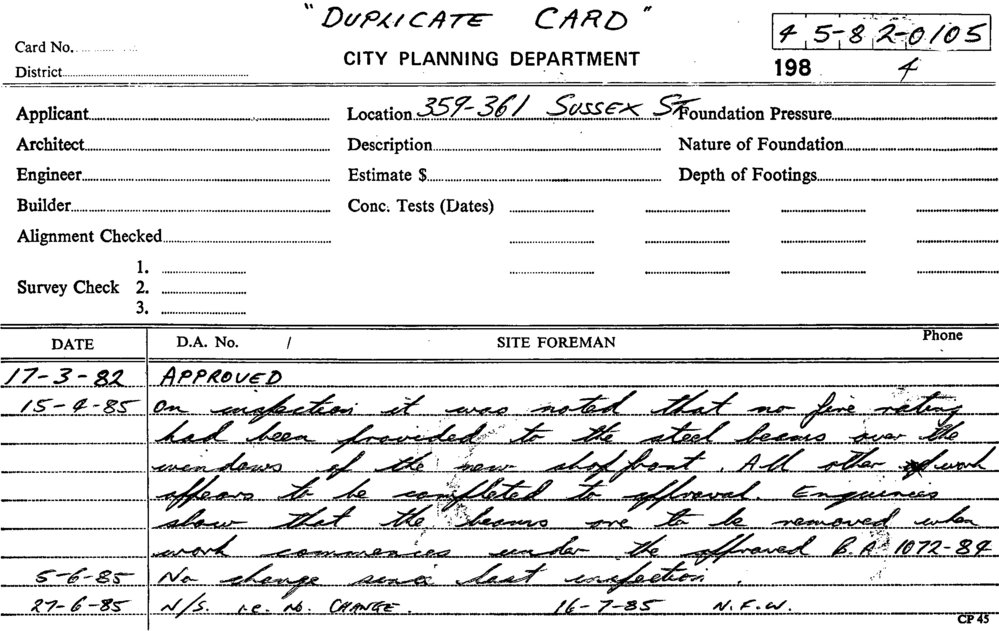 "DUPLICATE CARD"
45-82-0105
Card No.
CITY PLANNING DEPARTMENT
198 4
District
Applicant
Location 359-361 SUSSEX ST
Foundation Pressure
Architect
Description
Nature of Foundation
Engineer
Estimate $
Depth of Footings
Builder
Conc. Tests (Dates)
Alignment Checked
Survey Check
1.
2.
3.
DATE D.A. No. / SITE FOREMAN Phone
17-3-82 APPROVED
15-4-85 On inspection it was noted that no fire rating
had been provided to the steel beams over the
windows of the new shopfront. All other work
appears to be completed to approval. Enquiries
show that the beams are to be removed when
work commences under the approved B.A 1072-84
5-6-85 No change since last inspection.
27-6-85 N/S. i.e. No. CHANGE. 16-7-85 N.F.W.
CP 45